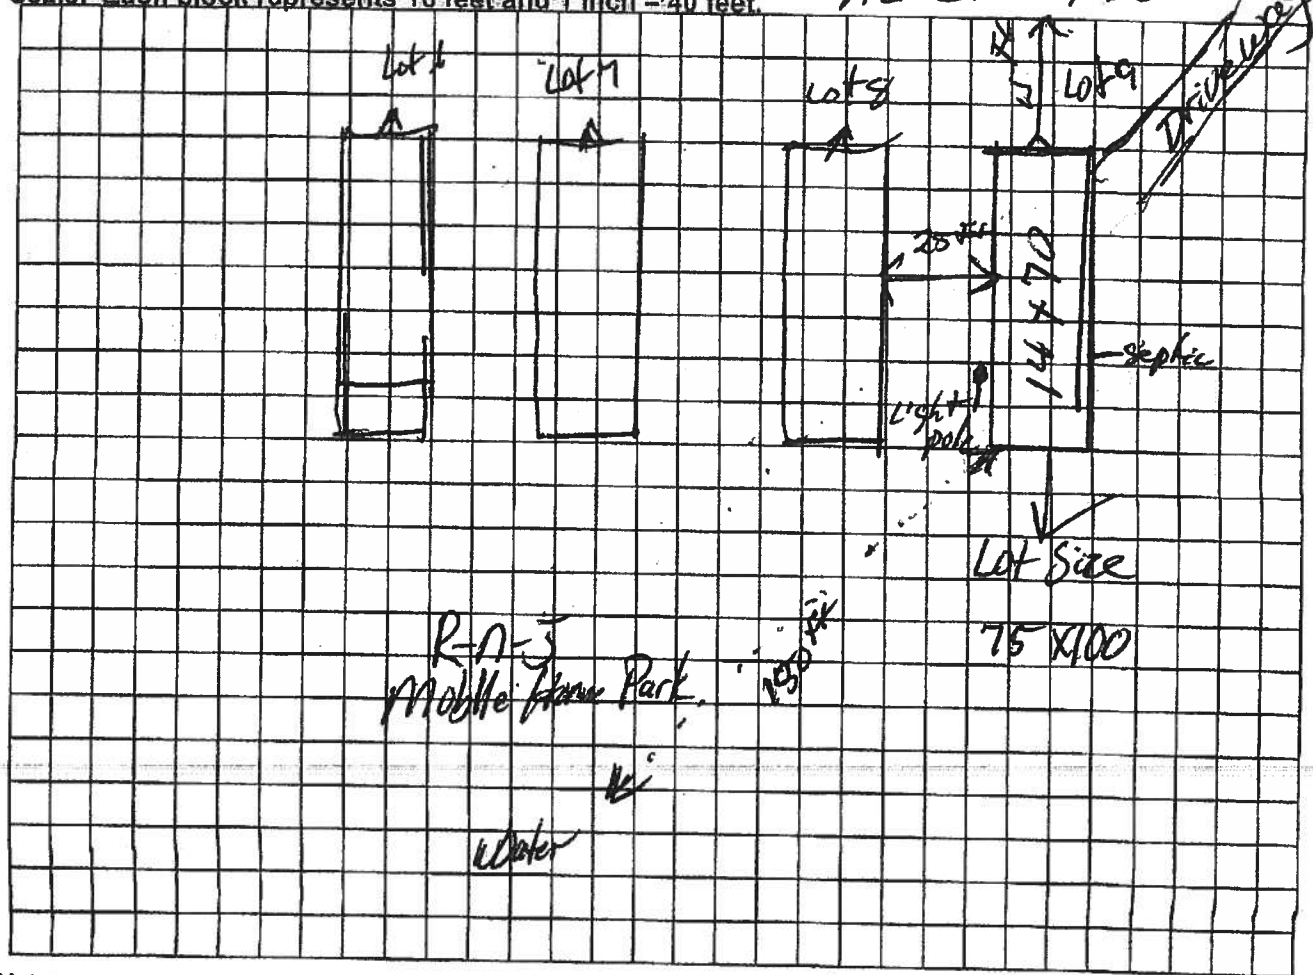 Scale: Each block represents 10 feet and 1 inch = 40 feet.
Lot 7
Lot 8
Lot 9
Driveway
14 x 70
septic
Light
pole
Lot Size
75 x 100
R-n-J
Mobile Home Park
150 ft
Water